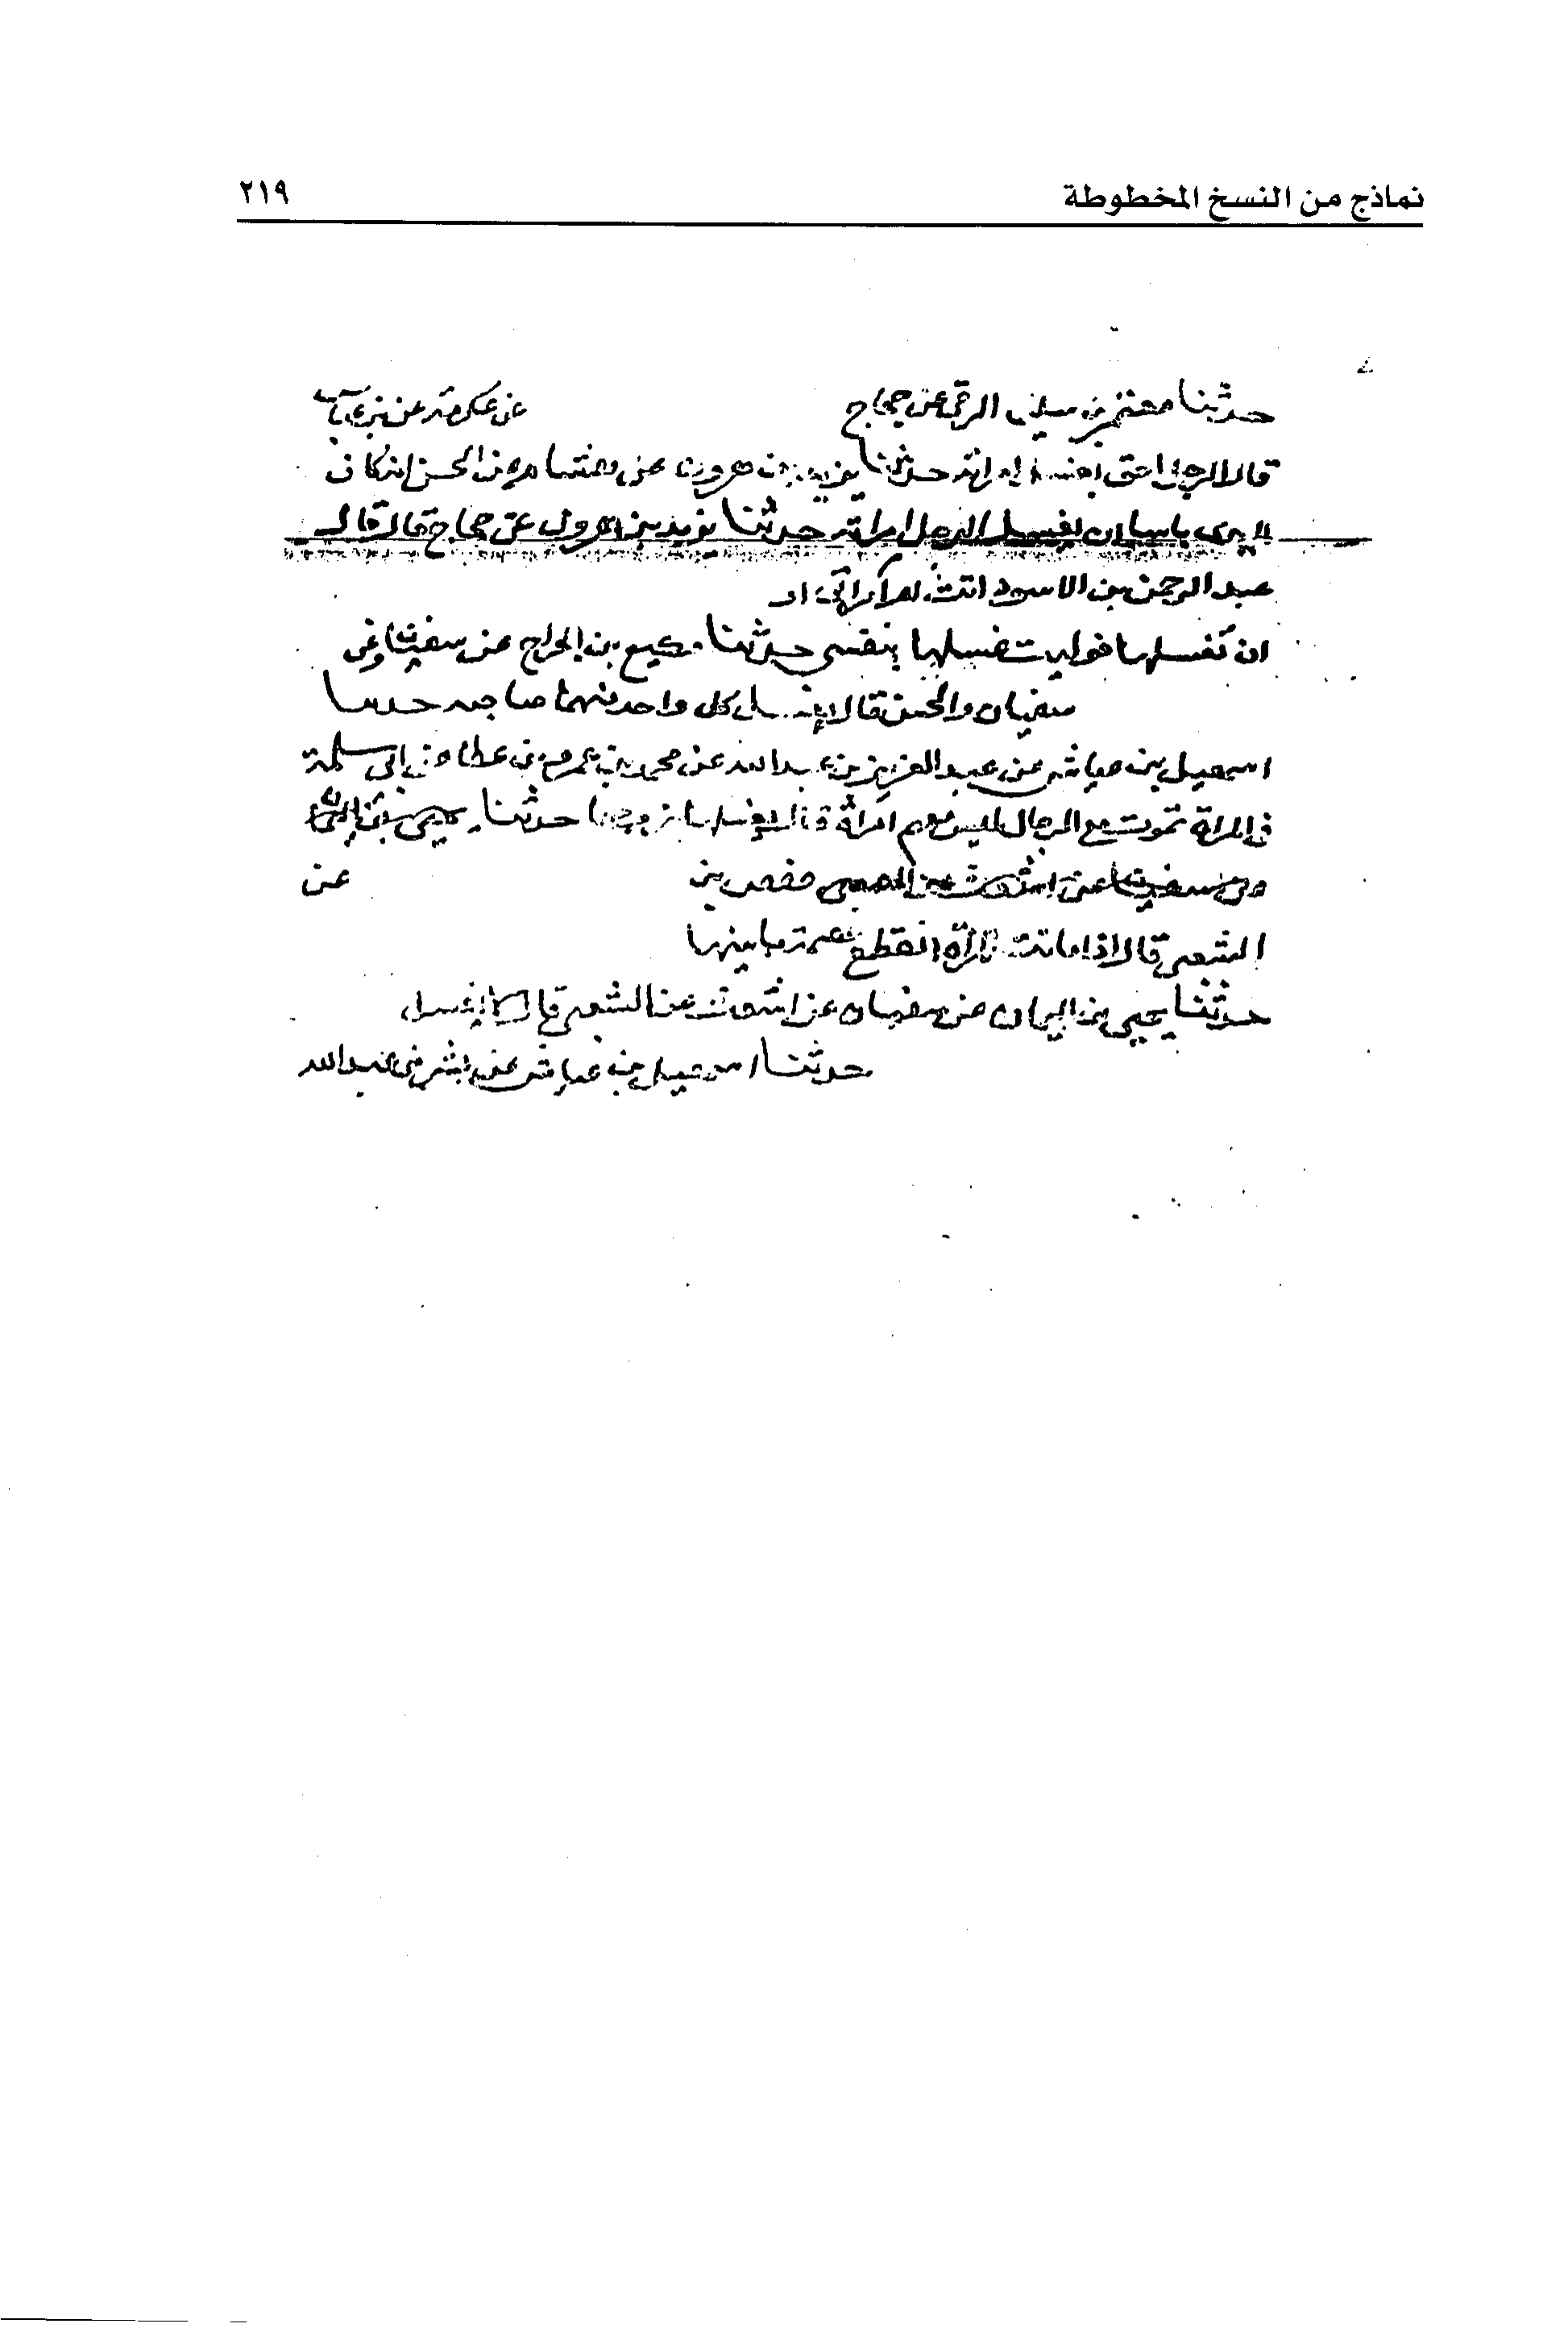 نماذج من النسخ المخطوطة ٢١٩
حدثنا معتمر بن سليمن الرقي عن حجاج عن عكرمة عن
قال الرجل احق بغسل امراته حدثنا يزيد بن هرون عن هشام عن الحسن انه كان
لا يرى باسا ان يغسل الرجل امراته حدثنا يزيد بن هرون عن حجاج قال قال
عبد الرحمن بن الاسود
ان تغسلها فوليت غسلها بنفسي حدثنا وكيع بن الجراح عن
سفيان والحسن قالا يغسل كل واحد منهما صاحبه حدثنا
اسمعيل بن عياش عن عبد العزيز بن عبد الله عن محمد بن عمرو بن عطا عن ابي سلمة
في المراة تموت مع الرجال ليس معهم امراة قال يغسلها زوجها حدثنا يحيى بن
عن اشعث عن حفص بن عن
الشعبي قال اذا ماتت المراة انقطع عصمة ما بينها
حدثنا يحيى بن اليمان عن سفيان عن اشعث عن الشعبي قال لا يغسل
حدثنا اسمعيل بن عياش عن بشر بن عبد الله